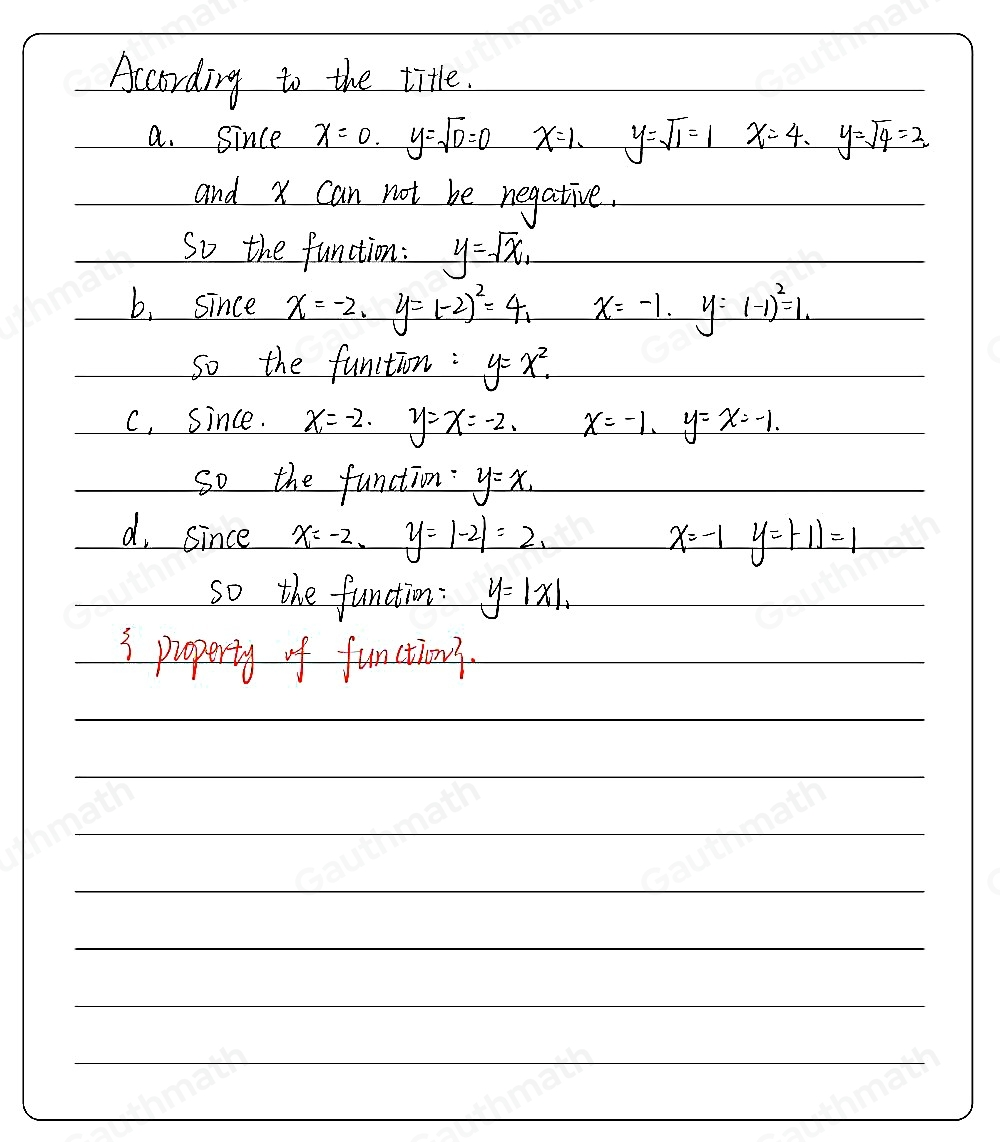 According to the title.
a. Since x=0. y=√0=0 x=1、 y=√1=1 x=4、 y=√4=2
and x can not be negative.
So the function: y=√x.
b. since x=-2、 y=(-2)²=4. x=-1. y=(-1)²=1.
so the function: y=x².
c, since. x=-2. y=x=-2、 x=-1、 y=x=-1.
so the function: y=x.
d. since x=-2、 y=|-2|=2. x=-1 y=|-1|=1
so the function: y=|x|.
{ property of function}.
Gauthmath